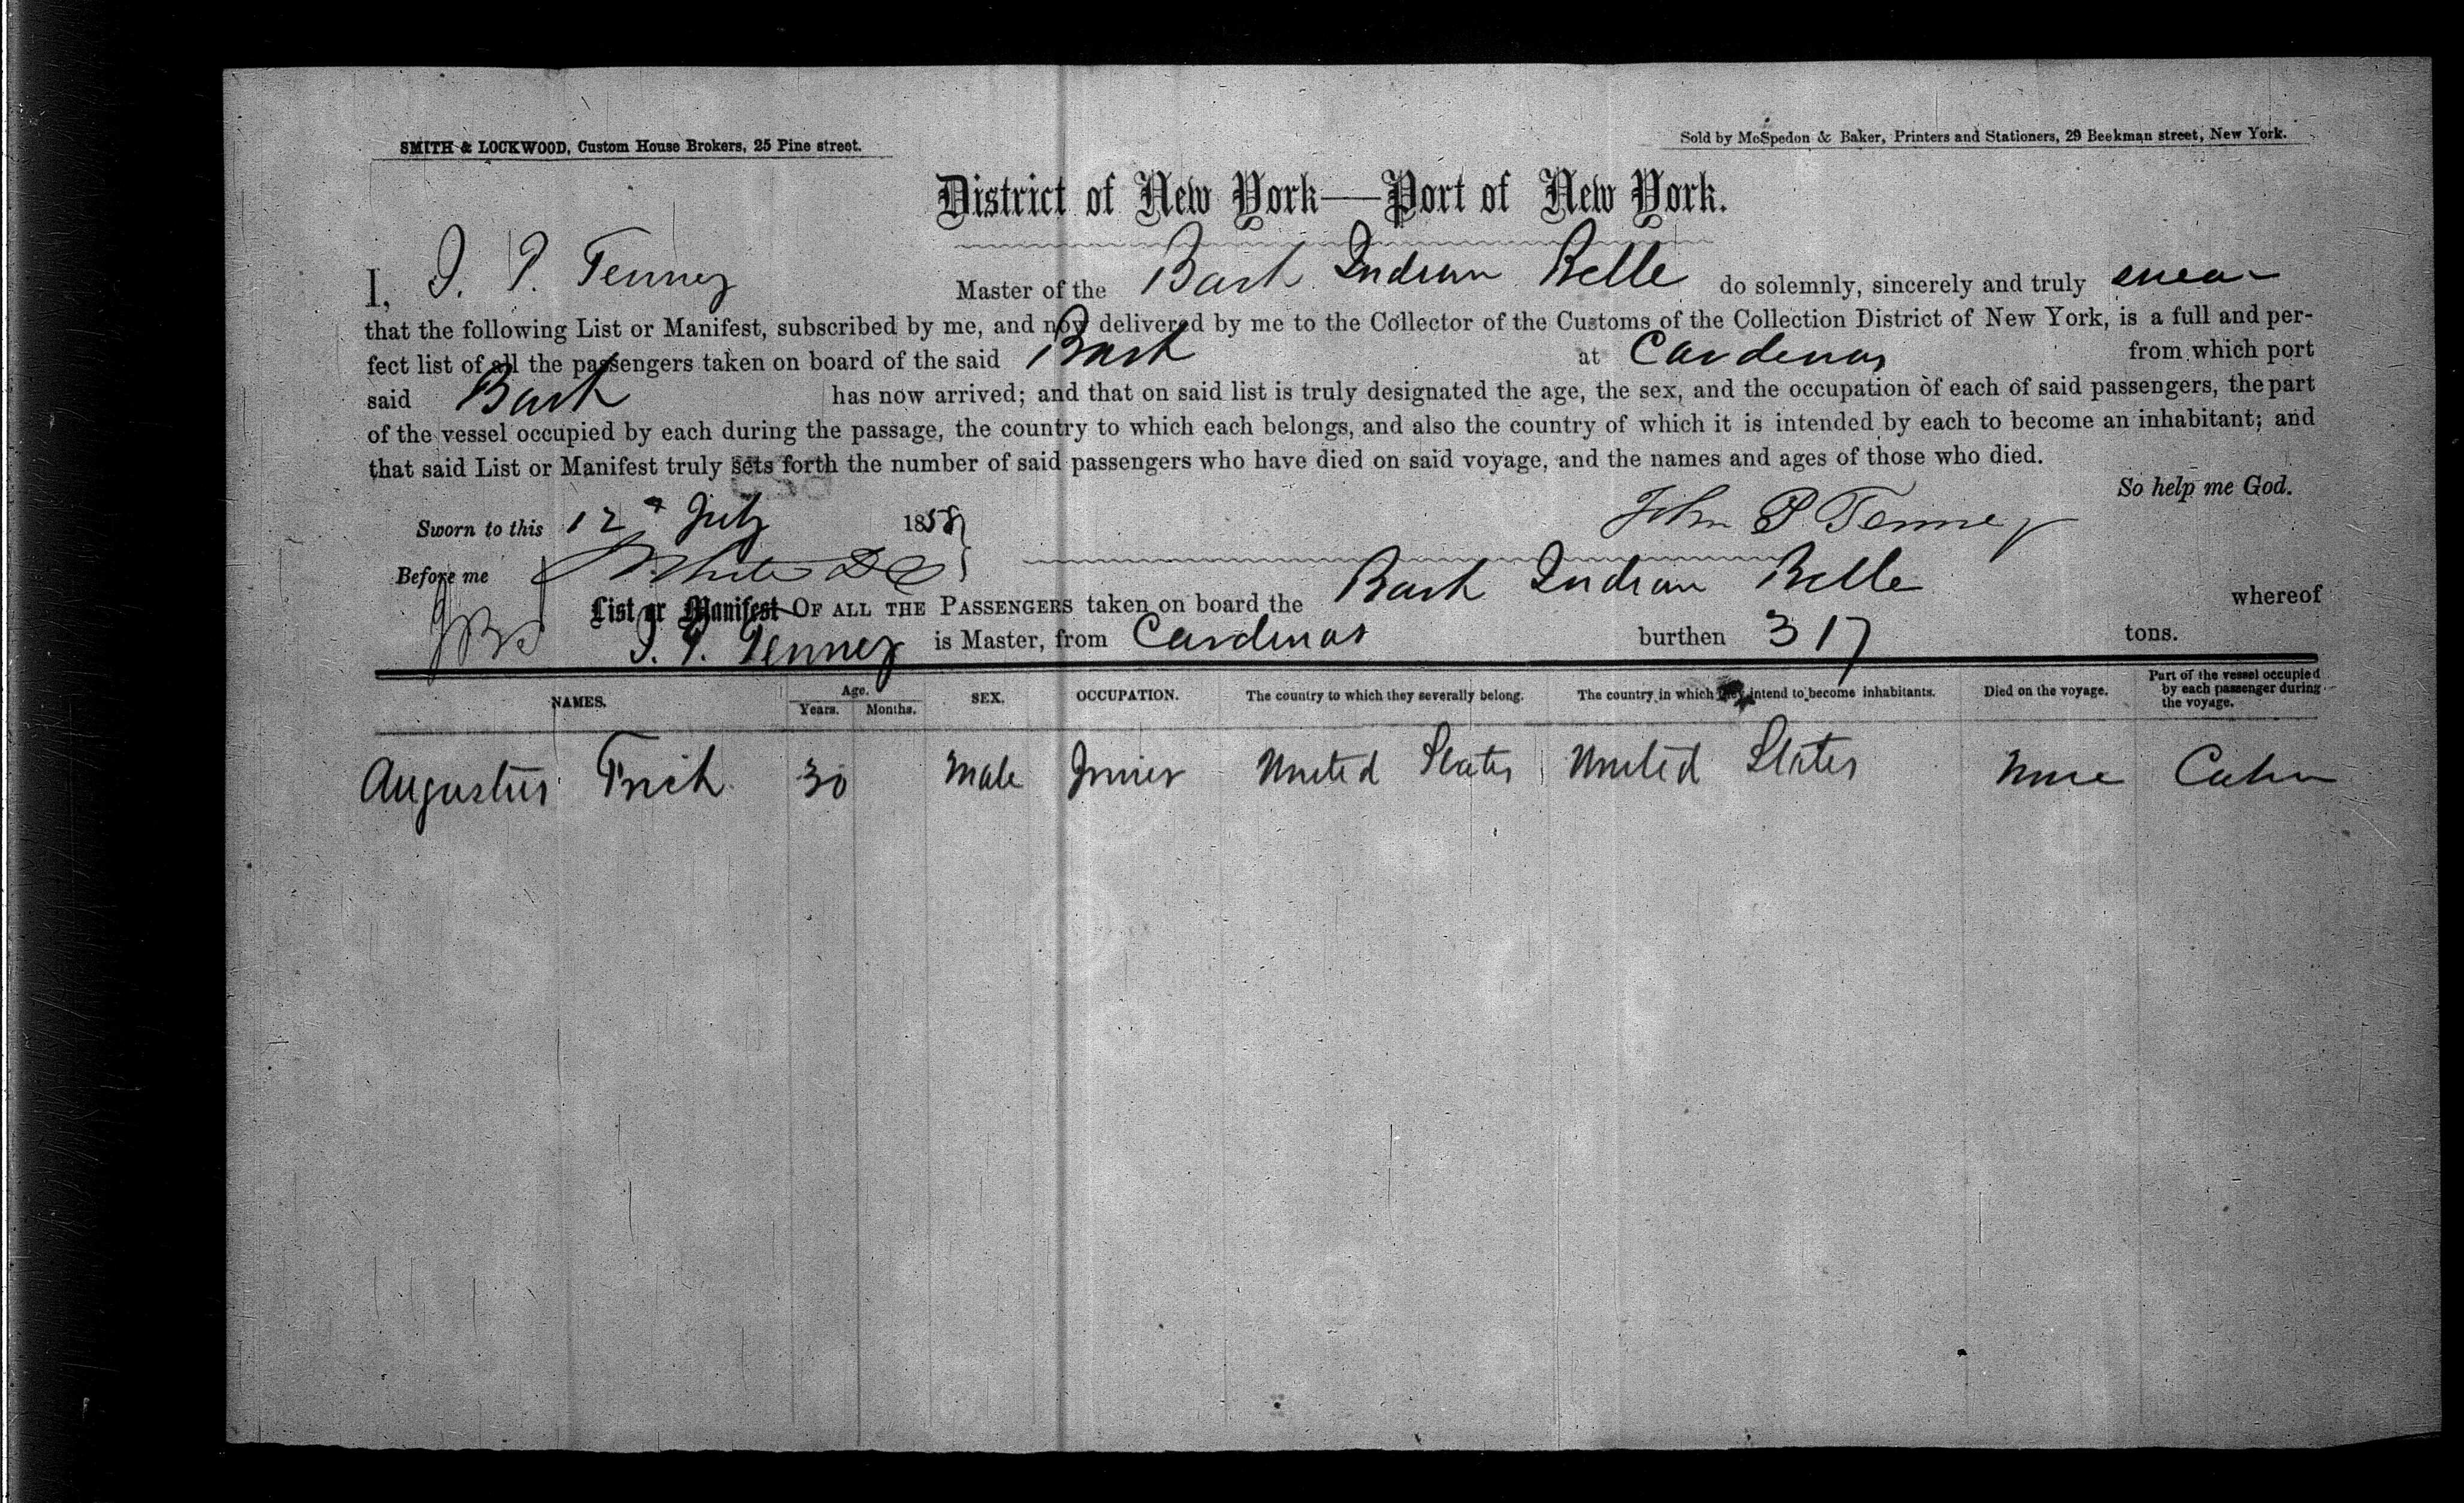 SMITH & LOCKWOOD, Custom House Brokers, 25 Pine street.
Sold by McSpedon & Baker, Printers and Stationers, 29 Beekman street, New York.
District of New York—Port of New York.
I, J. P. Tenney Master of the Bark Indian Belle do solemnly, sincerely and truly swear
that the following List or Manifest, subscribed by me, and now delivered by me to the Collector of the Customs of the Collection District of New York, is a full and per-
fect list of all the passengers taken on board of the said Bark at Cardenas from which port
said Bark has now arrived; and that on said list is truly designated the age, the sex, and the occupation of each of said passengers, the part
of the vessel occupied by each during the passage, the country to which each belongs, and also the country of which it is intended by each to become an inhabitant; and
that said List or Manifest truly sets forth the number of said passengers who have died on said voyage, and the names and ages of those who died.
So help me God.
Sworn to this 12th July 1858 John P Tenney
Before me
List or Manifest OF ALL THE PASSENGERS taken on board the Bark Indian Belle whereof
J. P. Tenney is Master, from Cardenas burthen 317 tons.
NAMES. Age. Years. Months. SEX. OCCUPATION. The country to which they severally belong. The country in which they intend to become inhabitants. Died on the voyage. Part of the vessel occupied by each passenger during the voyage.
Augustus 30 Male United States United States None Cabin